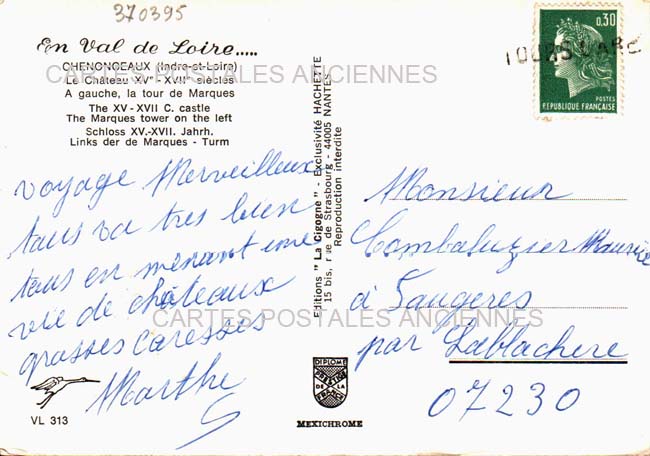 370395
En Val de Loire.....
CHENONCEAUX (Indre-et-Loire)
Le Château XVe - XVIIe siècles
A gauche, la tour de Marques
The XV - XVII C. castle
The Marques tower on the left
Schloss XV.-XVII. Jahrh.
Links der de Marques - Turm
CARTES POSTALES ANCIENNES
voyage Merveilleux
tous va tres bien
tous en menant une
vie de châteaux
grosses caresses
Marthe
VL 313
Editions "La Cigogne" - Exclusivité HACHETTE
15 bis, rue de Strasbourg - 44005 NANTES
Reproduction interdite
DIPLOME
PRESTIGE
DE LA
FRANCE
MEXICHROME
0,30
POSTES
REPUBLIQUE FRANÇAISE
TOURS GARE
Monsieur
Combaluzier Maurice
à Faugeres
par Lablachere
07230
CARTES POSTALES ANCIENNES